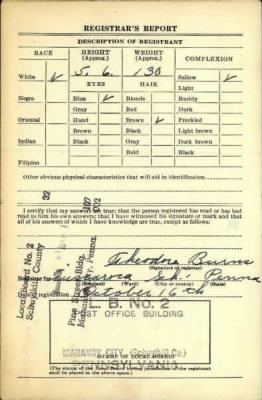 REGISTRAR'S REPORT
DESCRIPTION OF REGISTRANT
RACE HEIGHT (Approx.) WEIGHT (Approx.) COMPLEXION
White ✓ 5. 6. 130 Sallow ✓
EYES HAIR Light
Negro Blue ✓ Blonde Ruddy
Gray Red Dark
Oriental Hazel Brown ✓ Freckled
Brown Black Light brown
Indian Black Gray Dark brown
Bald Black
Filipino
Other obvious physical characteristics that will aid in identification
I certify that my answers are true; that the person registered has read or has had
read to him his own answers; that I have witnessed his signature or mark and that
all of his answers of which I have knowledge are true, except as follows:
Local Board No. 2
Schuylkill County
32
Theodora Burns
(Signature of registrar)
Registrar for
(Precinct) (Ward) (City or county) (State)
Date of registration October 16
L. B. No. 2
POST OFFICE BUILDING
MAHANOY CITY, (Schuylkill Co.)
PENNSYLVANIA
STAMP OF LOCAL BOARD
(The stamp of the Local Board having jurisdiction of the registrant
shall be placed in the above space.)